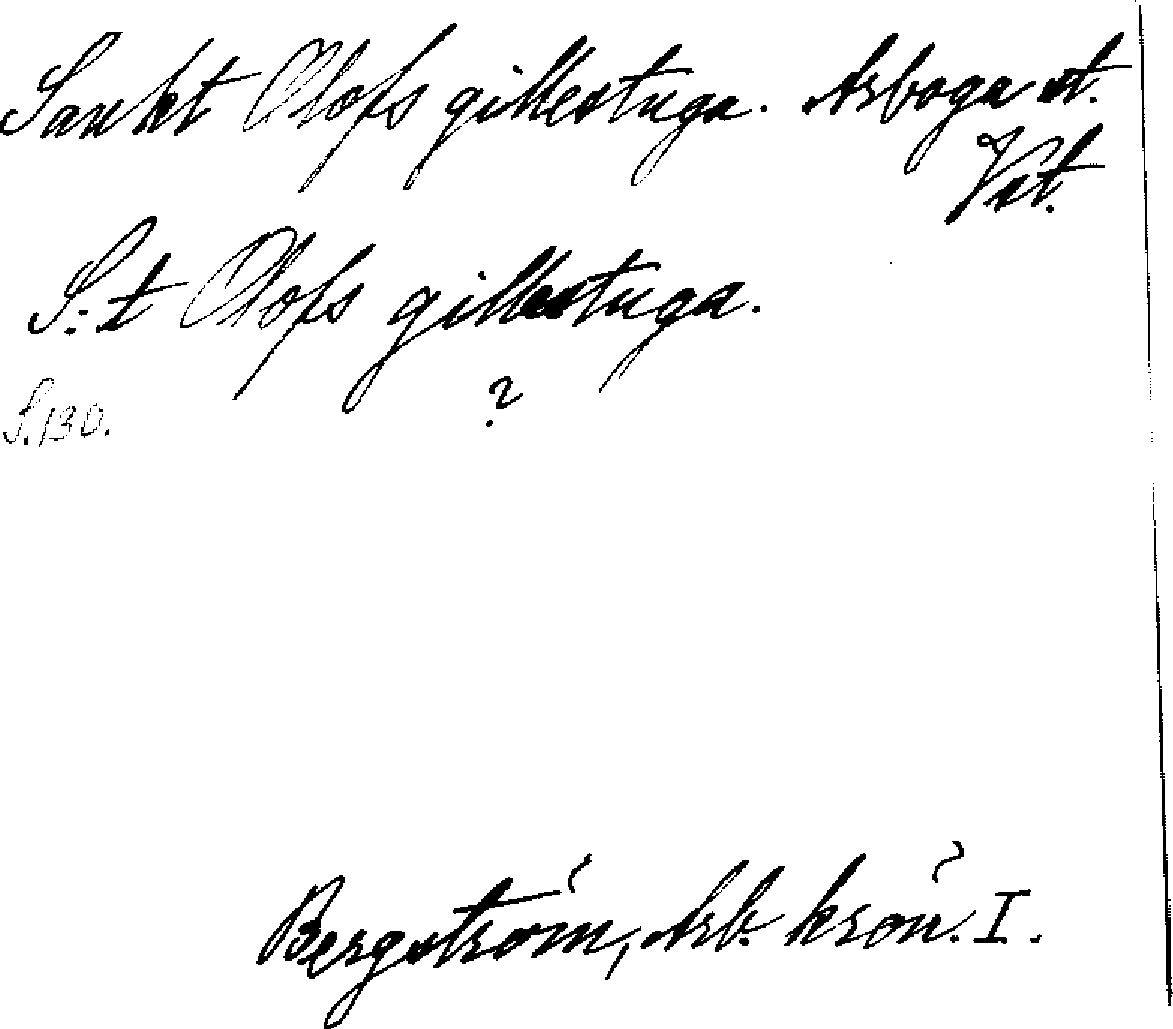 Sankt Olofs gillestuga. Arboga st.
Vst.
S:t Olofs gillestuga.
?
S. 130.
Bergström, Arb. krön. I.